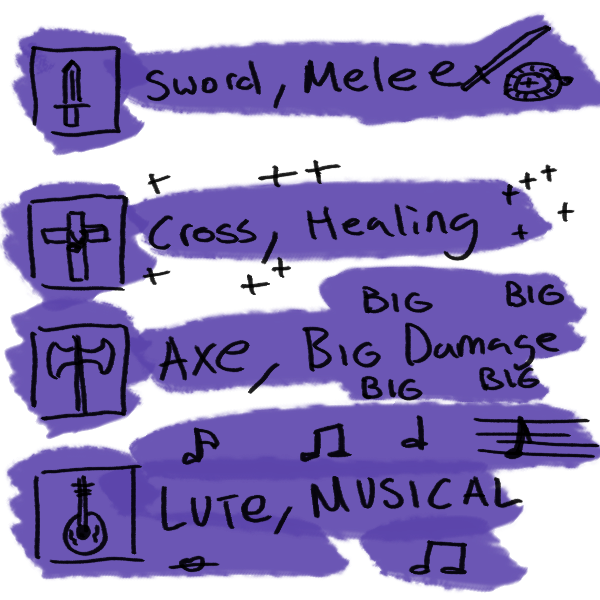 Sword, Melee
Cross, Healing
BIG BIG
Axe, BIG Damage
BIG BIG
LUTe, MUSICAL